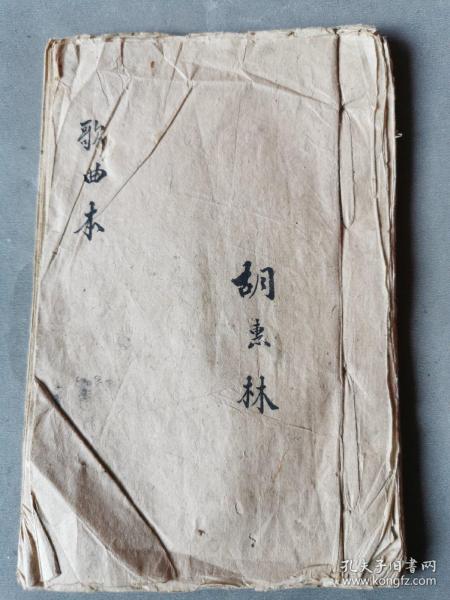 歌曲本
胡惠林
孔夫子旧书网
www.kongfz.com